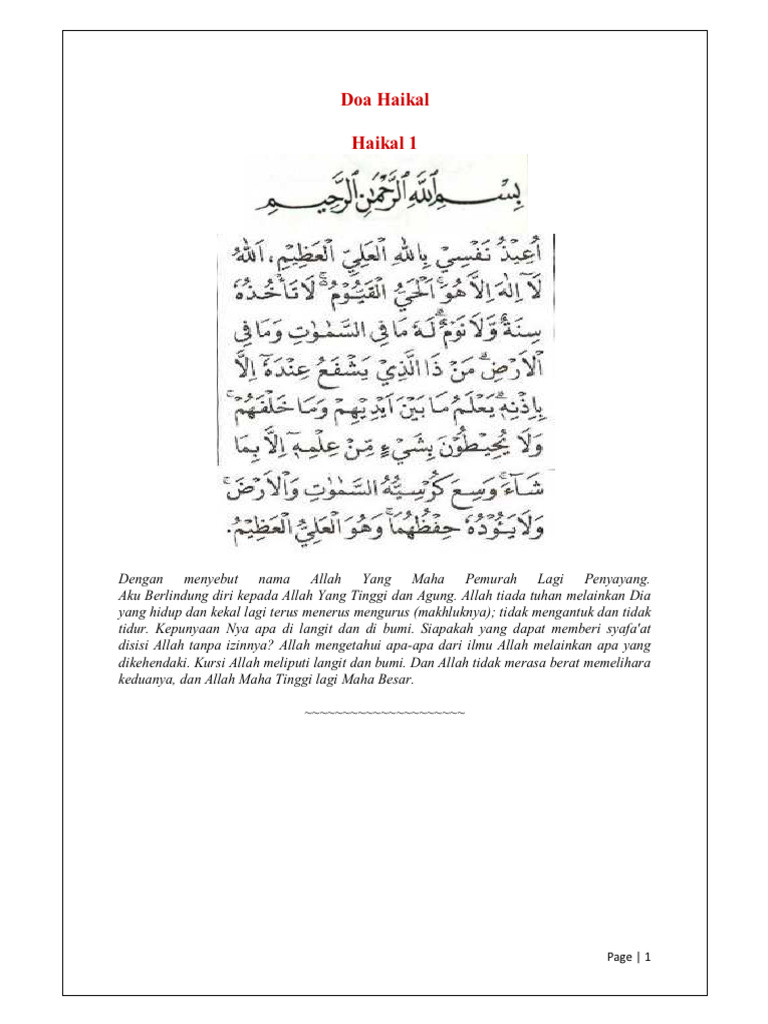 Doa Haikal
Haikal 1
بِسْمِ اللهِ الرَّحْمٰنِ الرَّحِيْمِ
اُعِيْذُ نَفْسِيْ بِاللهِ الْعَلِيِّ الْعَظِيْمِ، اَللهُ
لَآ اِلٰهَ اِلَّا هُوَۚ اَلْحَيُّ الْقَيُّوْمُ ۚ لَا تَأْخُذُهٗ
سِنَةٌ وَّلَا نَوْمٌ ۗ لَهٗ مَا فِى السَّمٰوٰتِ وَمَا فِى
الْاَرْضِ ۗ مَنْ ذَا الَّذِيْ يَشْفَعُ عِنْدَهٗٓ اِلَّا
بِاِذْنِهٖ ۗ يَعْلَمُ مَا بَيْنَ اَيْدِيْهِمْ وَمَا خَلْفَهُمْ ۚ
وَلَا يُحِيْطُوْنَ بِشَيْءٍ مِّنْ عِلْمِهٖٓ اِلَّا بِمَا
شَآءَ ۚ وَسِعَ كُرْسِيُّهُ السَّمٰوٰتِ وَالْاَرْضَ ۚ
وَلَا يَـُٔوْدُهٗ حِفْظُهُمَا ۚ وَهُوَ الْعَلِيُّ الْعَظِيْمُ.
Dengan menyebut nama Allah Yang Maha Pemurah Lagi Penyayang.
Aku Berlindung diri kepada Allah Yang Tinggi dan Agung. Allah tiada tuhan melainkan Dia
yang hidup dan kekal lagi terus menerus mengurus (makhluknya); tidak mengantuk dan tidak
tidur. Kepunyaan Nya apa di langit dan di bumi. Siapakah yang dapat memberi syafa'at
disisi Allah tanpa izinnya? Allah mengetahui apa-apa dari ilmu Allah melainkan apa yang
dikehendaki. Kursi Allah meliputi langit dan bumi. Dan Allah tidak merasa berat memelihara
keduanya, dan Allah Maha Tinggi lagi Maha Besar.
~~~~~~~~~~~~~~~~~~~~~
Page | 1